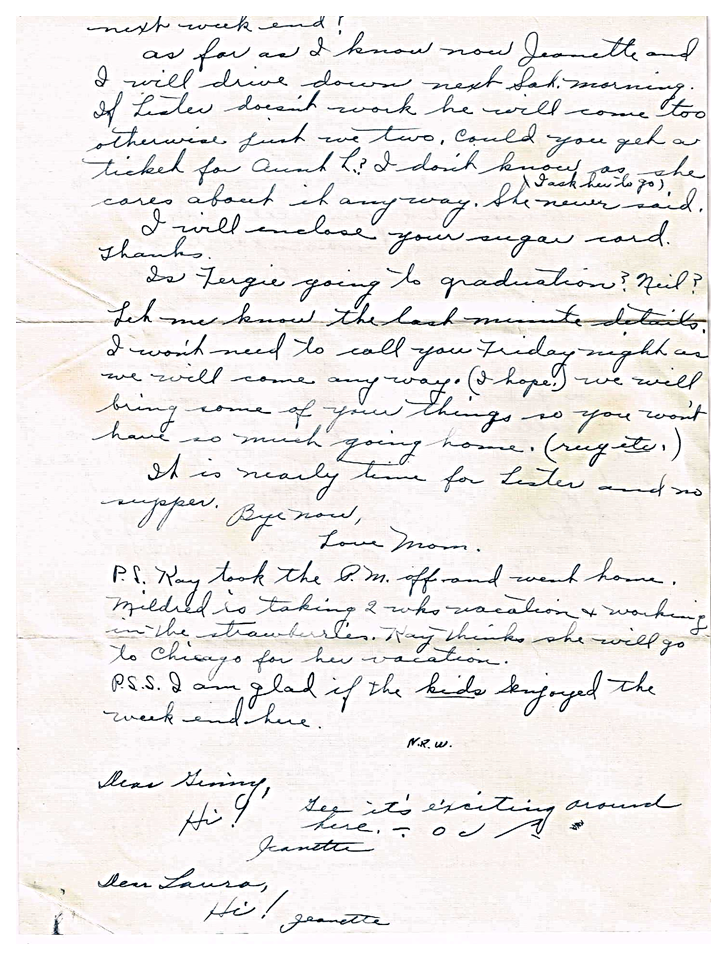 next week end!
as far as I know now Jeanette and
I will drive down next Sat. morning.
If Lester doesn't work he will come too
otherwise just we two. Could you get a
ticket for Aunt L.? I don't know as she
(I ask her to go)
cares about it anyway. She never said.
I will enclose your sugar card.
Thanks.
Is Fergie going to graduation? Neil?
Let me know the last minute details.
I won't need to call you Friday night as
we will come anyway. (I hope.) we will
bring some of your things so you won't
have so much going home. (rug etc.)
It is nearly time for Lester and no
supper. Bye now,
Love Mom.
P.S. Kay took the P.M. off and went home.
Mildred is taking 2 wks vacation & working
in the strawberries. Kay thinks she will go
to Chicago for her vacation.
P.S.S. I am glad if the kids enjoyed the
week end here.
N.R.W.
Dear Ginny,
Hi! Gee it's exciting around
here.
Jeanette
Dear Laura,
Hi! Jeanette